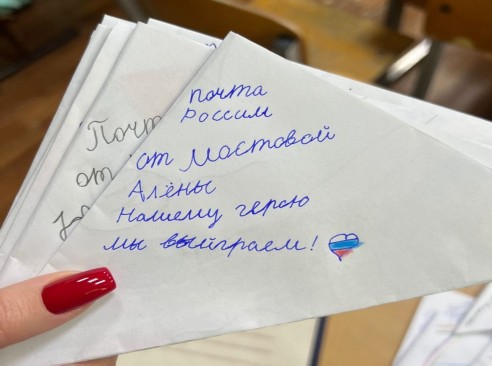 почта
России
от Мостовой
Алёны
Нашему герою
мы выйграем!
Почт
от